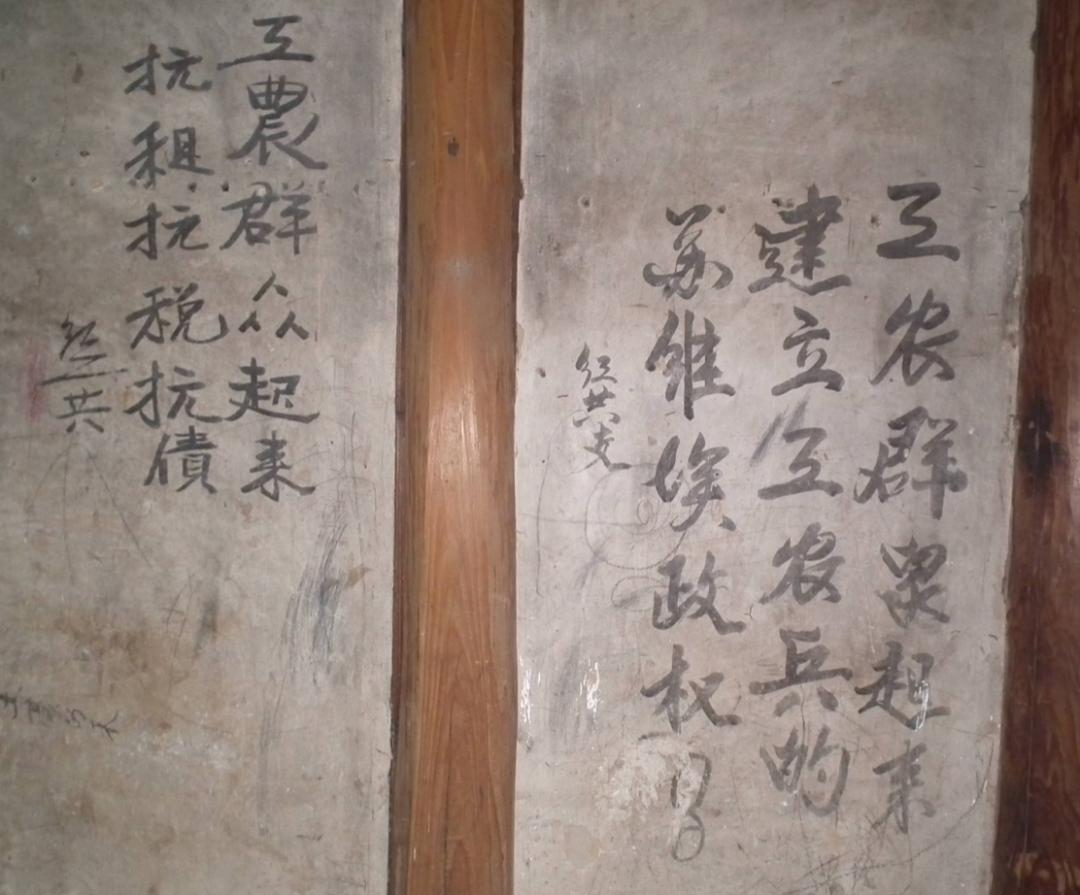 工农群眾起来
建立工农兵的
苏维埃政权!
红共支
工農群众起来
抗租抗税抗債
红三共